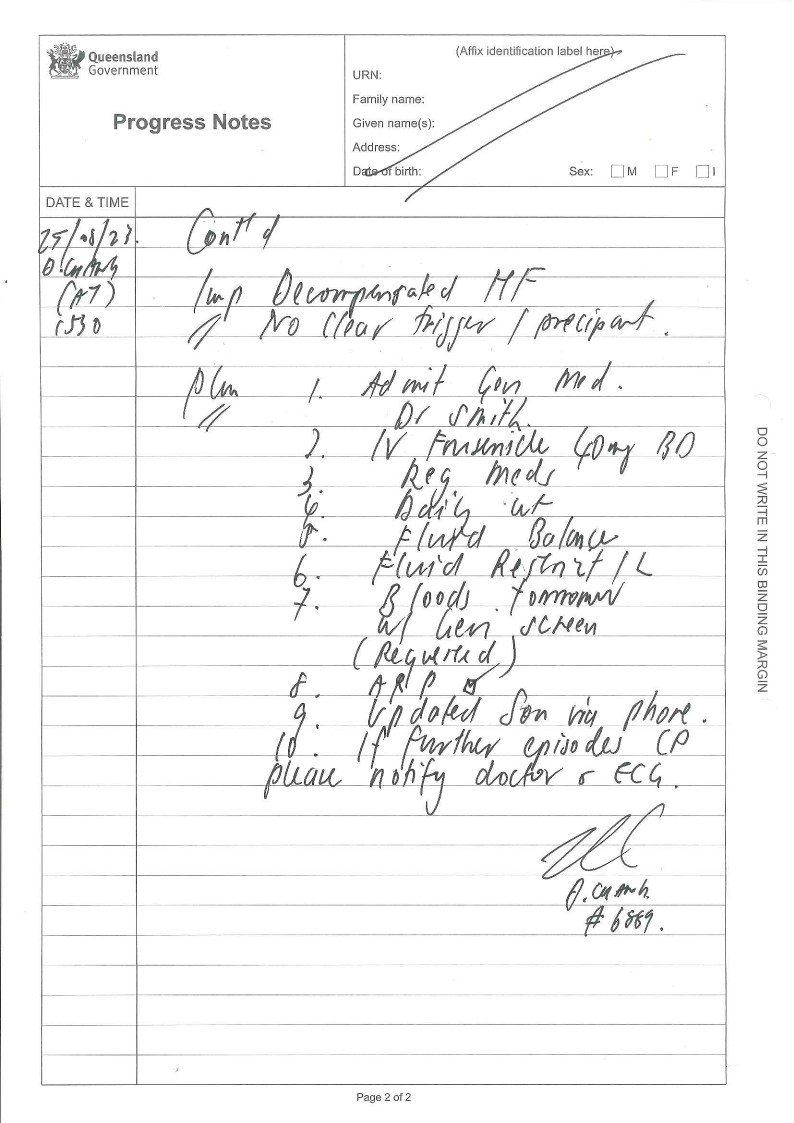 Queensland
Government
Progress Notes
(Affix identification label here)
URN:
Family name:
Given name(s):
Address:
Date of birth:
Sex: M F I
DATE & TIME
25/08/23.
(AT)
1530
Cont'd
Imp Decompensated HF
No Clear trigger / precipant.
Plan 1. Admit Gen Med.
Dr Smith.
2. IV Frusemide 40mg BD
3. Reg Meds
4. Daily wt
5. Fluid Balance
6. Fluid Restrict 1L
7. Bloods tomorrow
w/ Gen screen
(Requested)
8. ARP ☑
9. Updated Son via phone.
10. If further episodes CP
please notify doctor & ECG.
#6889.
DO NOT WRITE IN THIS BINDING MARGIN
Page 2 of 2